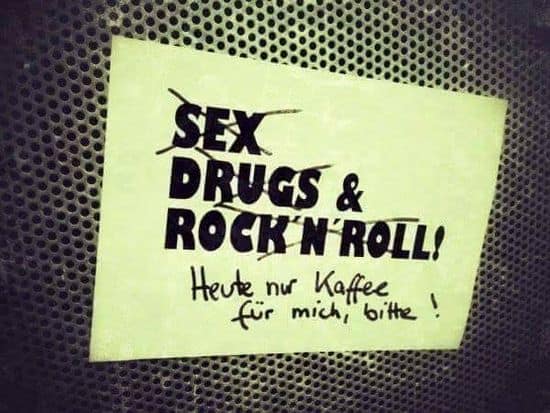 SEX
DRUGS &
ROCK'N'ROLL!
Heute nur Kaffee
für mich, bitte !